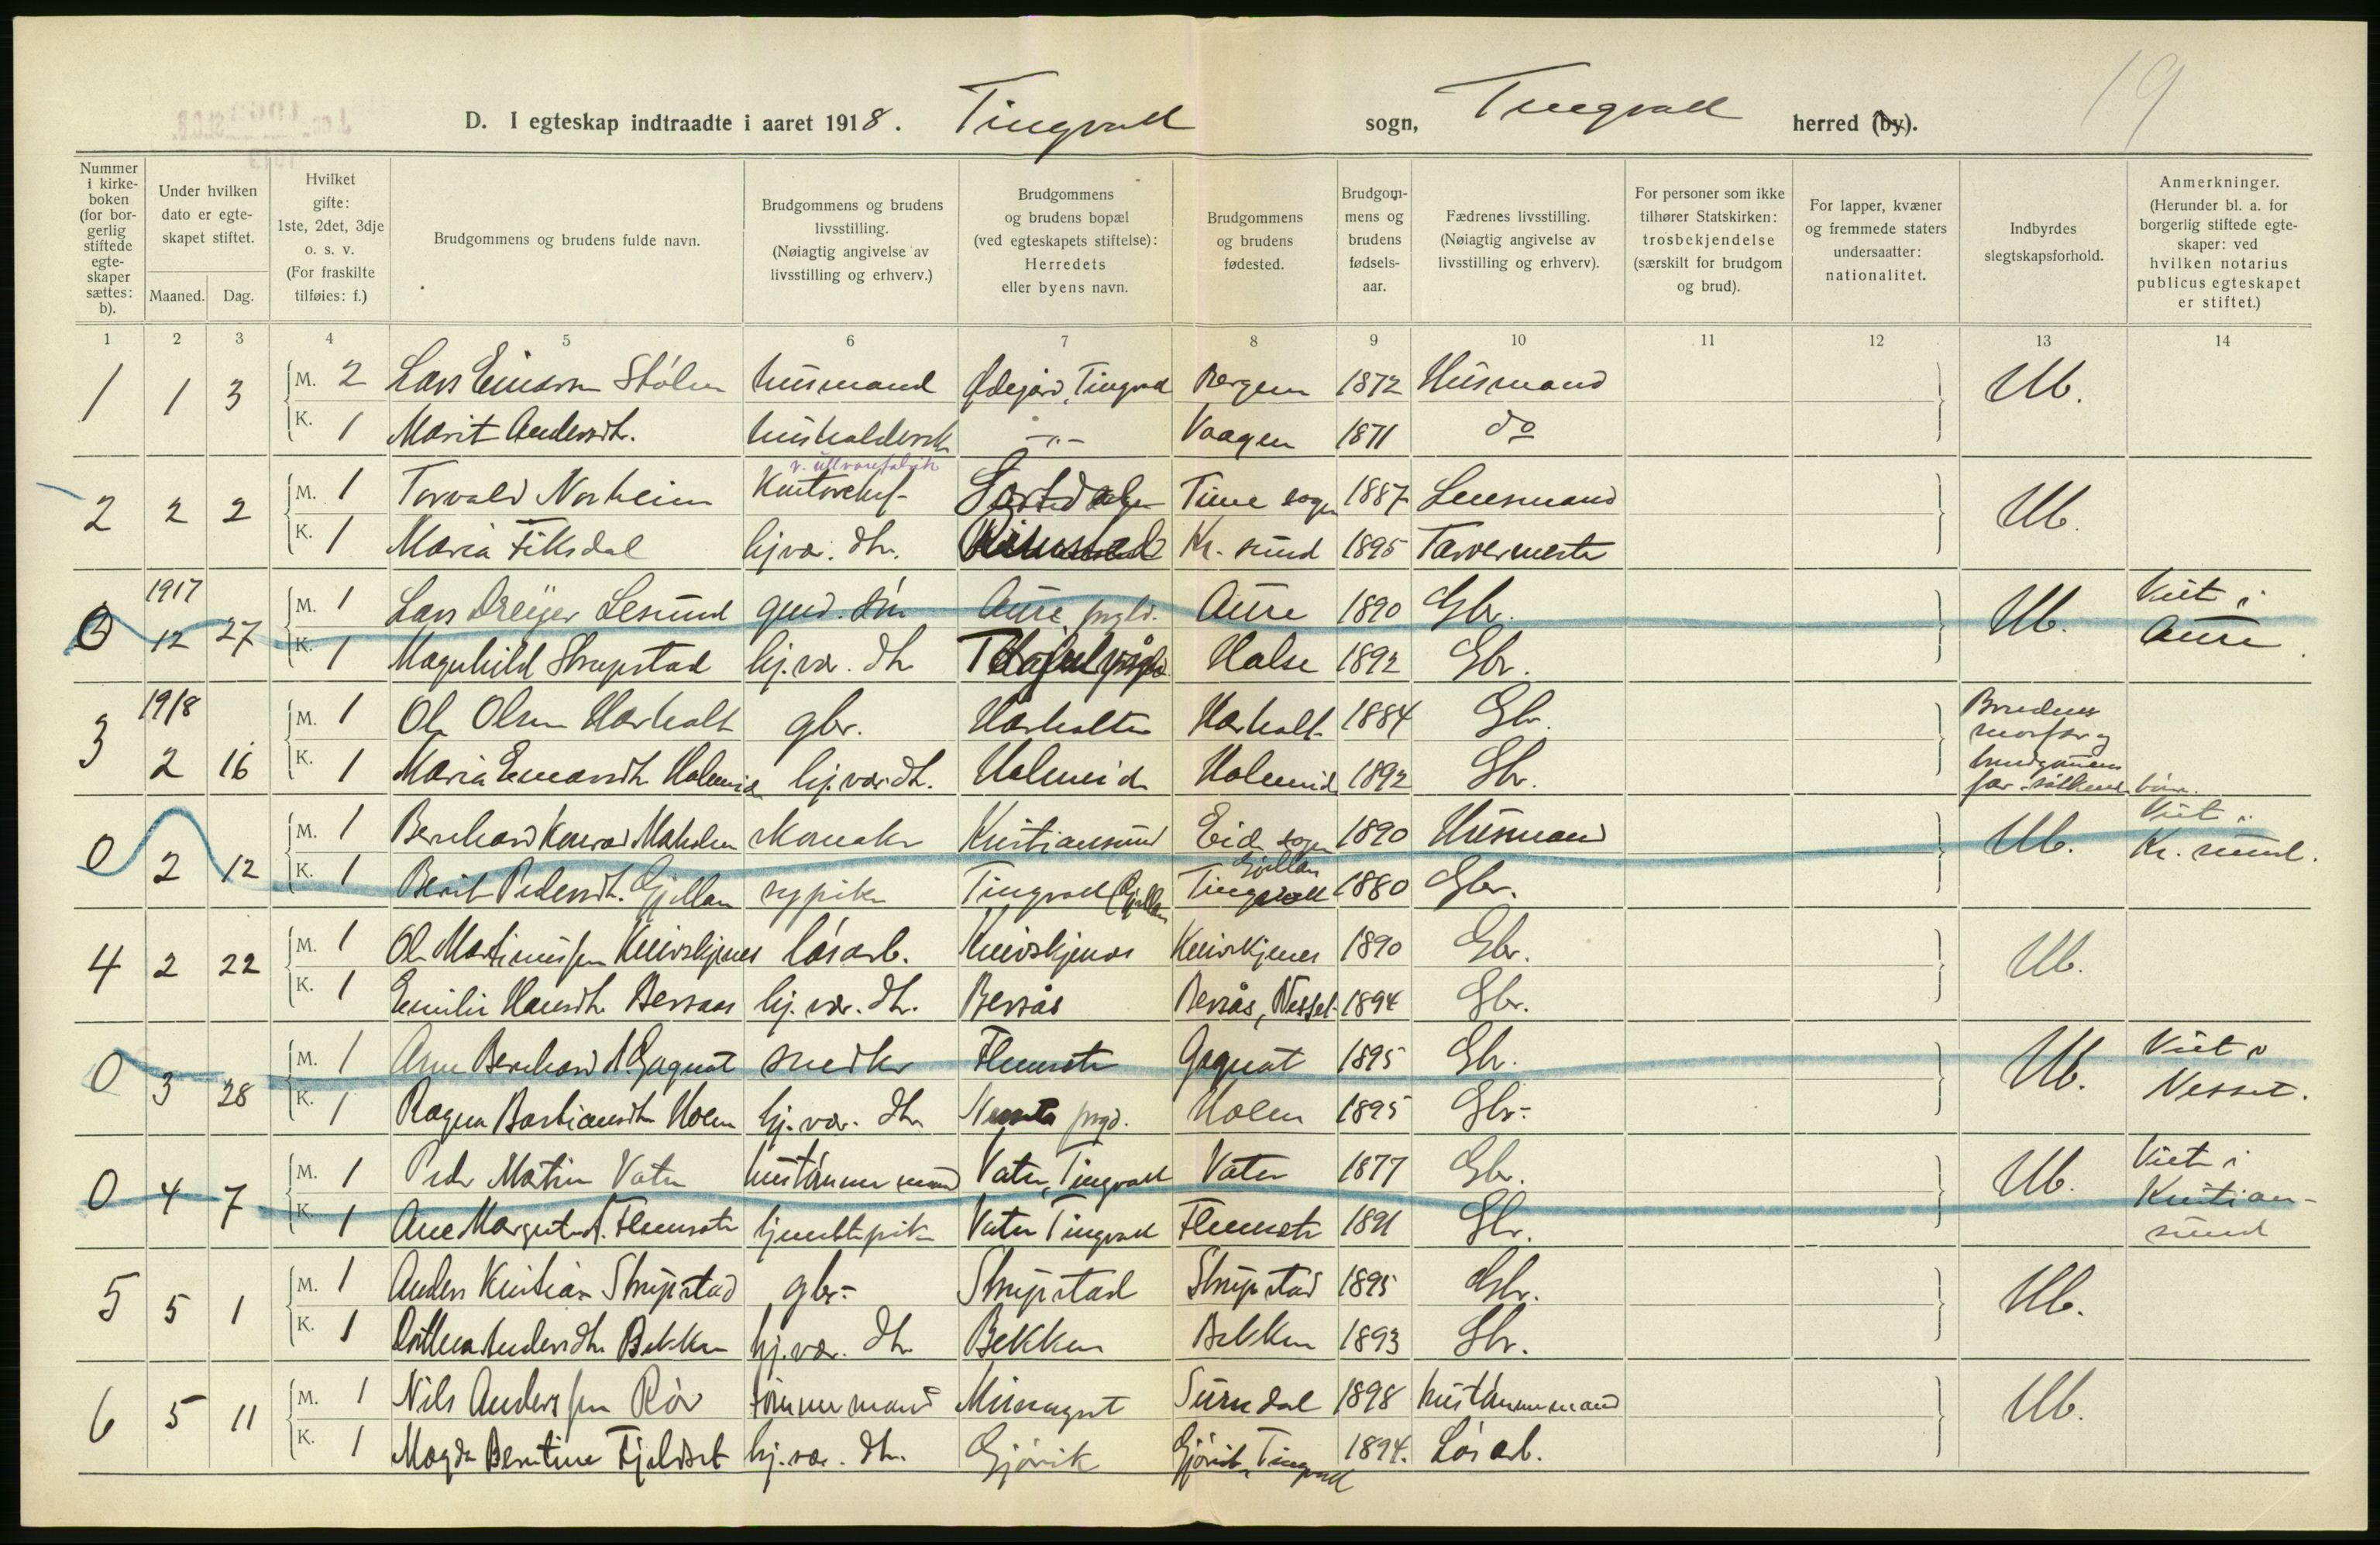 19
D. I egteskap indtraadte i aaret 1918. Tingvoll sogn, Tingvoll herred (by).
Nummer i kirkeboken (for borgerlig stiftede egteskaper sættes: b).
Under hvilken dato er egteskapet stiftet.
Maaned. Dag.
Hvilket gifte: 1ste, 2det, 3dje o. s. v. (For fraskilte tilføies: f.)
Brudgommens og brudens fulde navn.
Brudgommens og brudens livsstilling. (Nøiagtig angivelse av livsstilling og erhverv.)
Brudgommens og brudens bopæl (ved egteskapets stiftelse): Herredets eller byens navn.
Brudgommens og brudens fødested.
Brudgommens og brudens fødselsaar.
Fædrenes livsstilling. (Nøiagtig angivelse av livsstilling og erhverv).
For personer som ikke tilhører Statskirken: trosbekjendelse (særskilt for brudgom og brud).
For lapper, kvæner og fremmede staters undersaatter: nationalitet.
Indbyrdes slegtskapsforhold.
Anmerkninger. (Herunder bl. a. for borgerlig stiftede egteskaper: ved hvilken notarius publicus egteskapet er stiftet.)
1 2 3 4 5 6 7 8 9 10 11 12 13 14
1 1 3 M. 2 Lars Einarsen Stólen husmand Ødegård, Tingvoll Bergen 1872 Husmand Ub.
K. 1 Marit Andersdtr. husholderske -"- Vaagen 1871 do
v. uldvarefabrik
2 2 2 M. 1 Torvald Norheim Kontorchef Time sogn 1887 Lensmand Ub.
K. 1 Maria Fiksdal hjvær. dtr. Kr. sund 1895 Farvermester
1917
0 12 27 M. 1 Lars Dreyer Lesund gmd. sön Aure prgld. Aure 1890 Gbr. Ub. Viet i Aure
K. 1 Magnhild Strupstad hj. vær. dtr Halse 1892 Gbr.
1918
3 2 16 M. 1 Ole Olsen Harholt gbr. Harholten Harholt 1884 Gbr. Brudens morfar og brudgomens far søskenbörn.
K. 1 Maria Einarsdtr Holmeide hj. vær dtr. Holmeide Holmeide 1892 Gbr.
0 2 12 M. 1 Bernhard Konrad Maholm skomaker Kristiansund Eid sogn 1890 Husmand Ub. Viet i Kr. sund.
K. 1 Berit Pedersdtr. Gjillan sypike Tingvoll (Gjillan Gjillan Tingvoll 1880 Gbr.
4 2 22 M. 1 Ole Martinussen Kneivskjenes lósarb. Kneivskjenes Kneivskjenes 1890 Gbr. Ub.
K. 1 Emilie Hansdtr Bersaas hj. vær. dtr. Bersås Bersås, Nesset 1894 Gbr.
0 3 28 M. 1 Arne Bernhard A. Gagnat snedker Flemsæter Gagnat 1895 Gbr. Ub. Viet i Nesset.
K. 1 Ragna Bastiansdtr Holen hj. vær. dtr prgd. Holen 1895 Gbr.
0 4 7 M. 1 Peder Martin Vaten hustömmermand Vaten, Tingvoll Vaten 1877 Gbr. Ub. Viet i Kristiansund
K. 1 Ane Margrete A. Flemsæter tjenestepike Vaten Tingvoll Flemsæter 1891 Gbr.
5 5 1 M. 1 Anders Kristian Strupstad gbr. Strupstad Strupstad 1895 Gbr. Ub.
K. 1 Andersdtr. Bekken hj. vær. dtr Bekken Bekken 1893 Gbr.
6 5 11 M. 1 Nils Anderssen Röv tömmermand Surndal 1898 hustömmermand Ub.
K. 1 Magda Berntine Fjeldset hj. vær. dtr. Gjörvik Gjörvik, Tingvoll 1894. Lósarb.